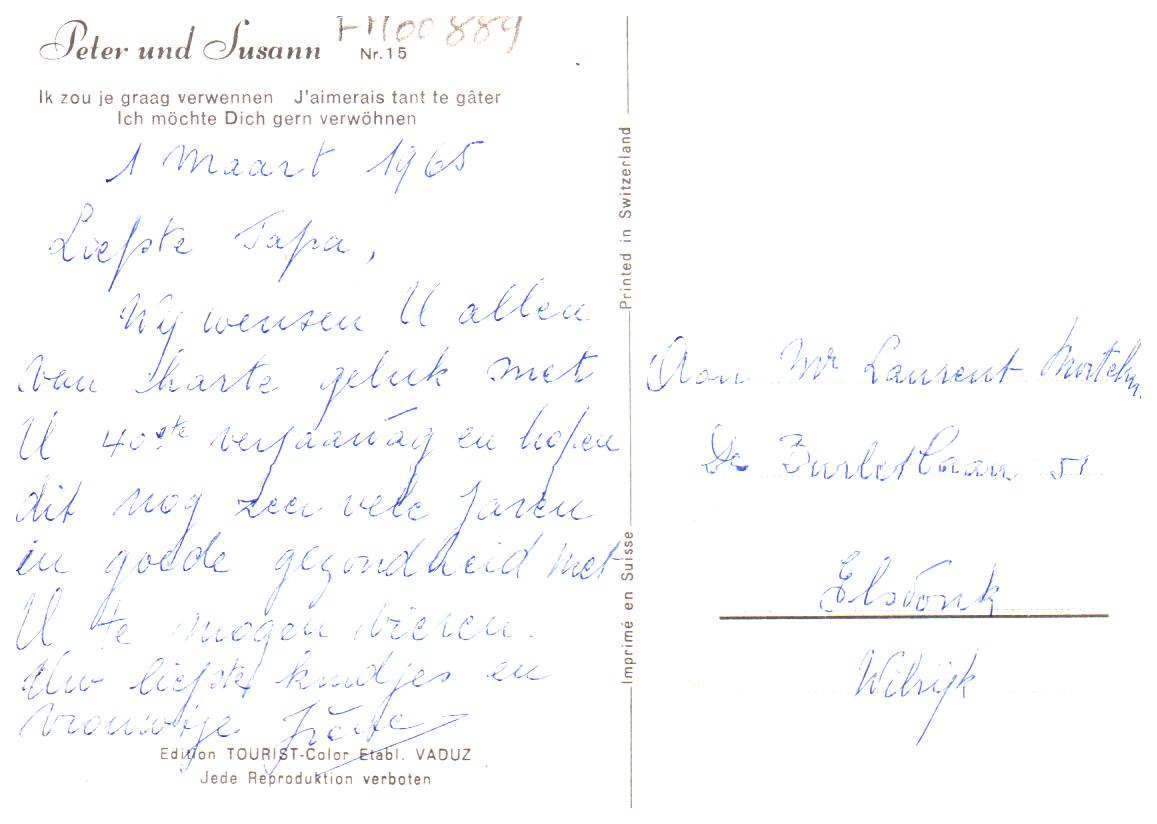 Peter und Susann
FM00889
Nr. 15
Ik zou je graag verwennen J'aimerais tant te gâter
Ich möchte Dich gern verwöhnen
1 Maart 1965
Liefste Papa,
Wij wensen U allen
van harte geluk met
U 40ste verjaardag en hopen
dit nog zeer vele jaren
in goede gezondheid met
U te mogen vieren.
Uw liefste kindjes en
vrouwtje
Edition TOURIST-Color Etabl. VADUZ
Jede Reproduktion verboten
Imprimé en Suisse Printed in Switzerland
Aan Mr Laurent
De Burletlaan 51
Elsdonk
Wilrijk